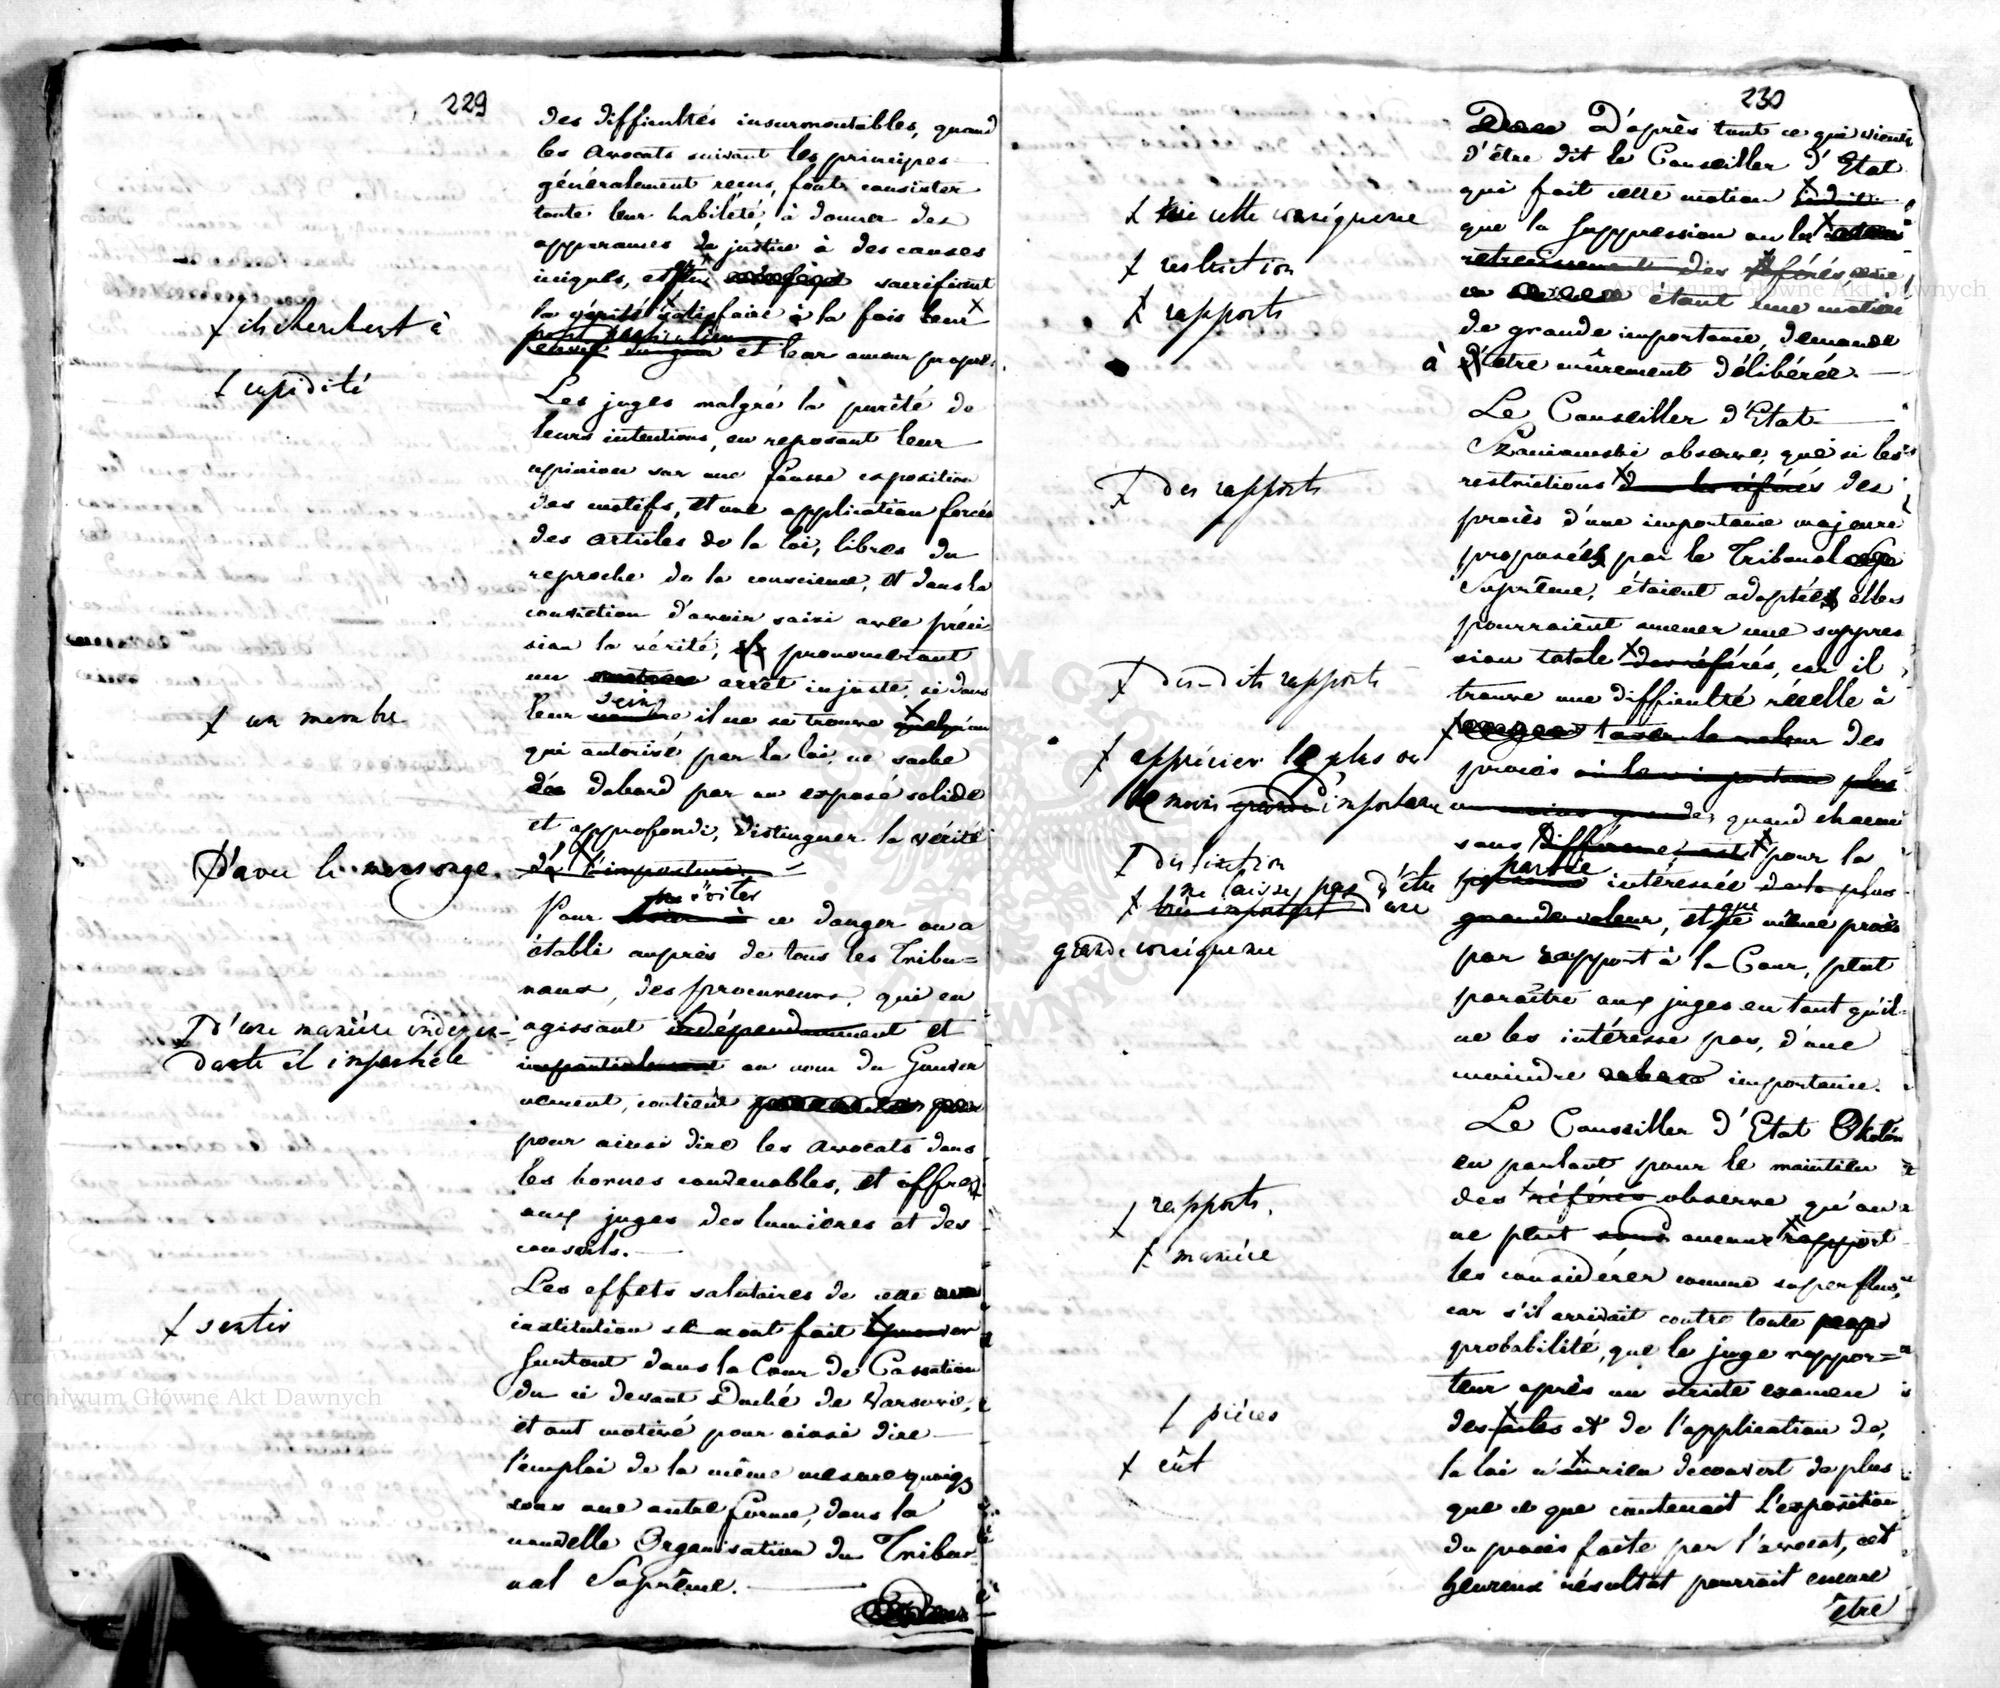 229
des difficultés insurmontables, quand
les avocats suivant les principes
généralement reçus, font consister
toute leur habilité, à donner des
apparences de justice à des causes
iniques, et sacrifiant
la vérité satisfaire à la fois leur
et leur amour propre.
⨍ ils cherchent à
⨍ cupidité
Les juges malgré la pureté de
leurs intentions, en reposant leur
opinion sur une fausse exposition
des motifs, et une application forcée
des articles de la loi, libres du
reproche de la conscience, et dans la
conviction d'avoir saisi avec préci
sion la vérité, prononceraient
un arrêt injuste, si dans
leur sein il ne se trouve quelqu'un
⨍ un membre
qui autorisé par la loi, ne sache
d'abord par un exposé solide
et approfondi, distinguer la vérité
de l'imposture
d'avec le mensonge.
Pour éviter ce danger on a
établi auprès de tous les Tribu=
naux, des procureurs, qui en
agissant indépendamment et
impartialement au nom du Gouver
⨍ d'une manière indépen-
dante et impartiale
nement, contient
pour ainsi dire les avocats dans
les bornes convenables, et offrent
aux juges des lumières et des
conseils.
Les effets salutaires de cette
institution se sont fait
⨍ sentir
surtout dans la Cour de Cassation
du ci devant Duché de Varsovie,
et ont motivé pour ainsi dire
l'emploi de la même mesure quoiq
sous une autre forme, dans la
nouvelle Organisation du Tribu
nal Suprême.
230
D'après tout ce qui vient
d'être dit le Conseiller d'Etat
qui fait cette motion
⨍ cette conséquence
que la suppression ou la
⨍ restriction
retrecissement des référés
⨍ rapports
étant une matière
de grande importance, demande
à être mûrement délibérée.
Le Conseiller d'Etat
Szaniawski observe, que si les
restrictions dans les référés des
⨍ des rapports
procès d'une importance majeure
proposées par le Tribunal
Suprême, étaient adoptées, elles
pourraient amener une suppres
sion totale des référés, car il
⨍ des dits rapports
trouve une difficulté réelle à
taxer la valeur des
⨍ apprécier le plus ou
le moins grande importance
procès où leur importance plus
ou moins grande, quand chacun
sans différence, est pour la
⨍ distinction
partie intéressée de la plus
⨍ ne laisse pas d'être
très important d'une
grande conséquence
grande valeur, et que le même procès
par rapport à la Cour, peut
paraître aux juges en tant qu'il
ne les intéresse pas, d'une
moindre importance.
Le Conseiller d'Etat Okołow
en parlant pour le maintien
des référés observe qu'on
⨍ rapports.
ne peut sous aucune rapport
⨍ manière
les considérer comme superflus,
car s'il arrivait contre toute
probabilité, que le juge rappor=
teur après un stricte examen
des actes et de l'application de
⨍ pièces
la loi n'ait rien découvert de plus
⨍ eût
que ce que contenait l'exposition
du procès faite par l'avocat, cet
heureux résultat pourrait encore
être
Archiwum Główne Akt Dawnych
Archiwum Główne Akt Dawnych